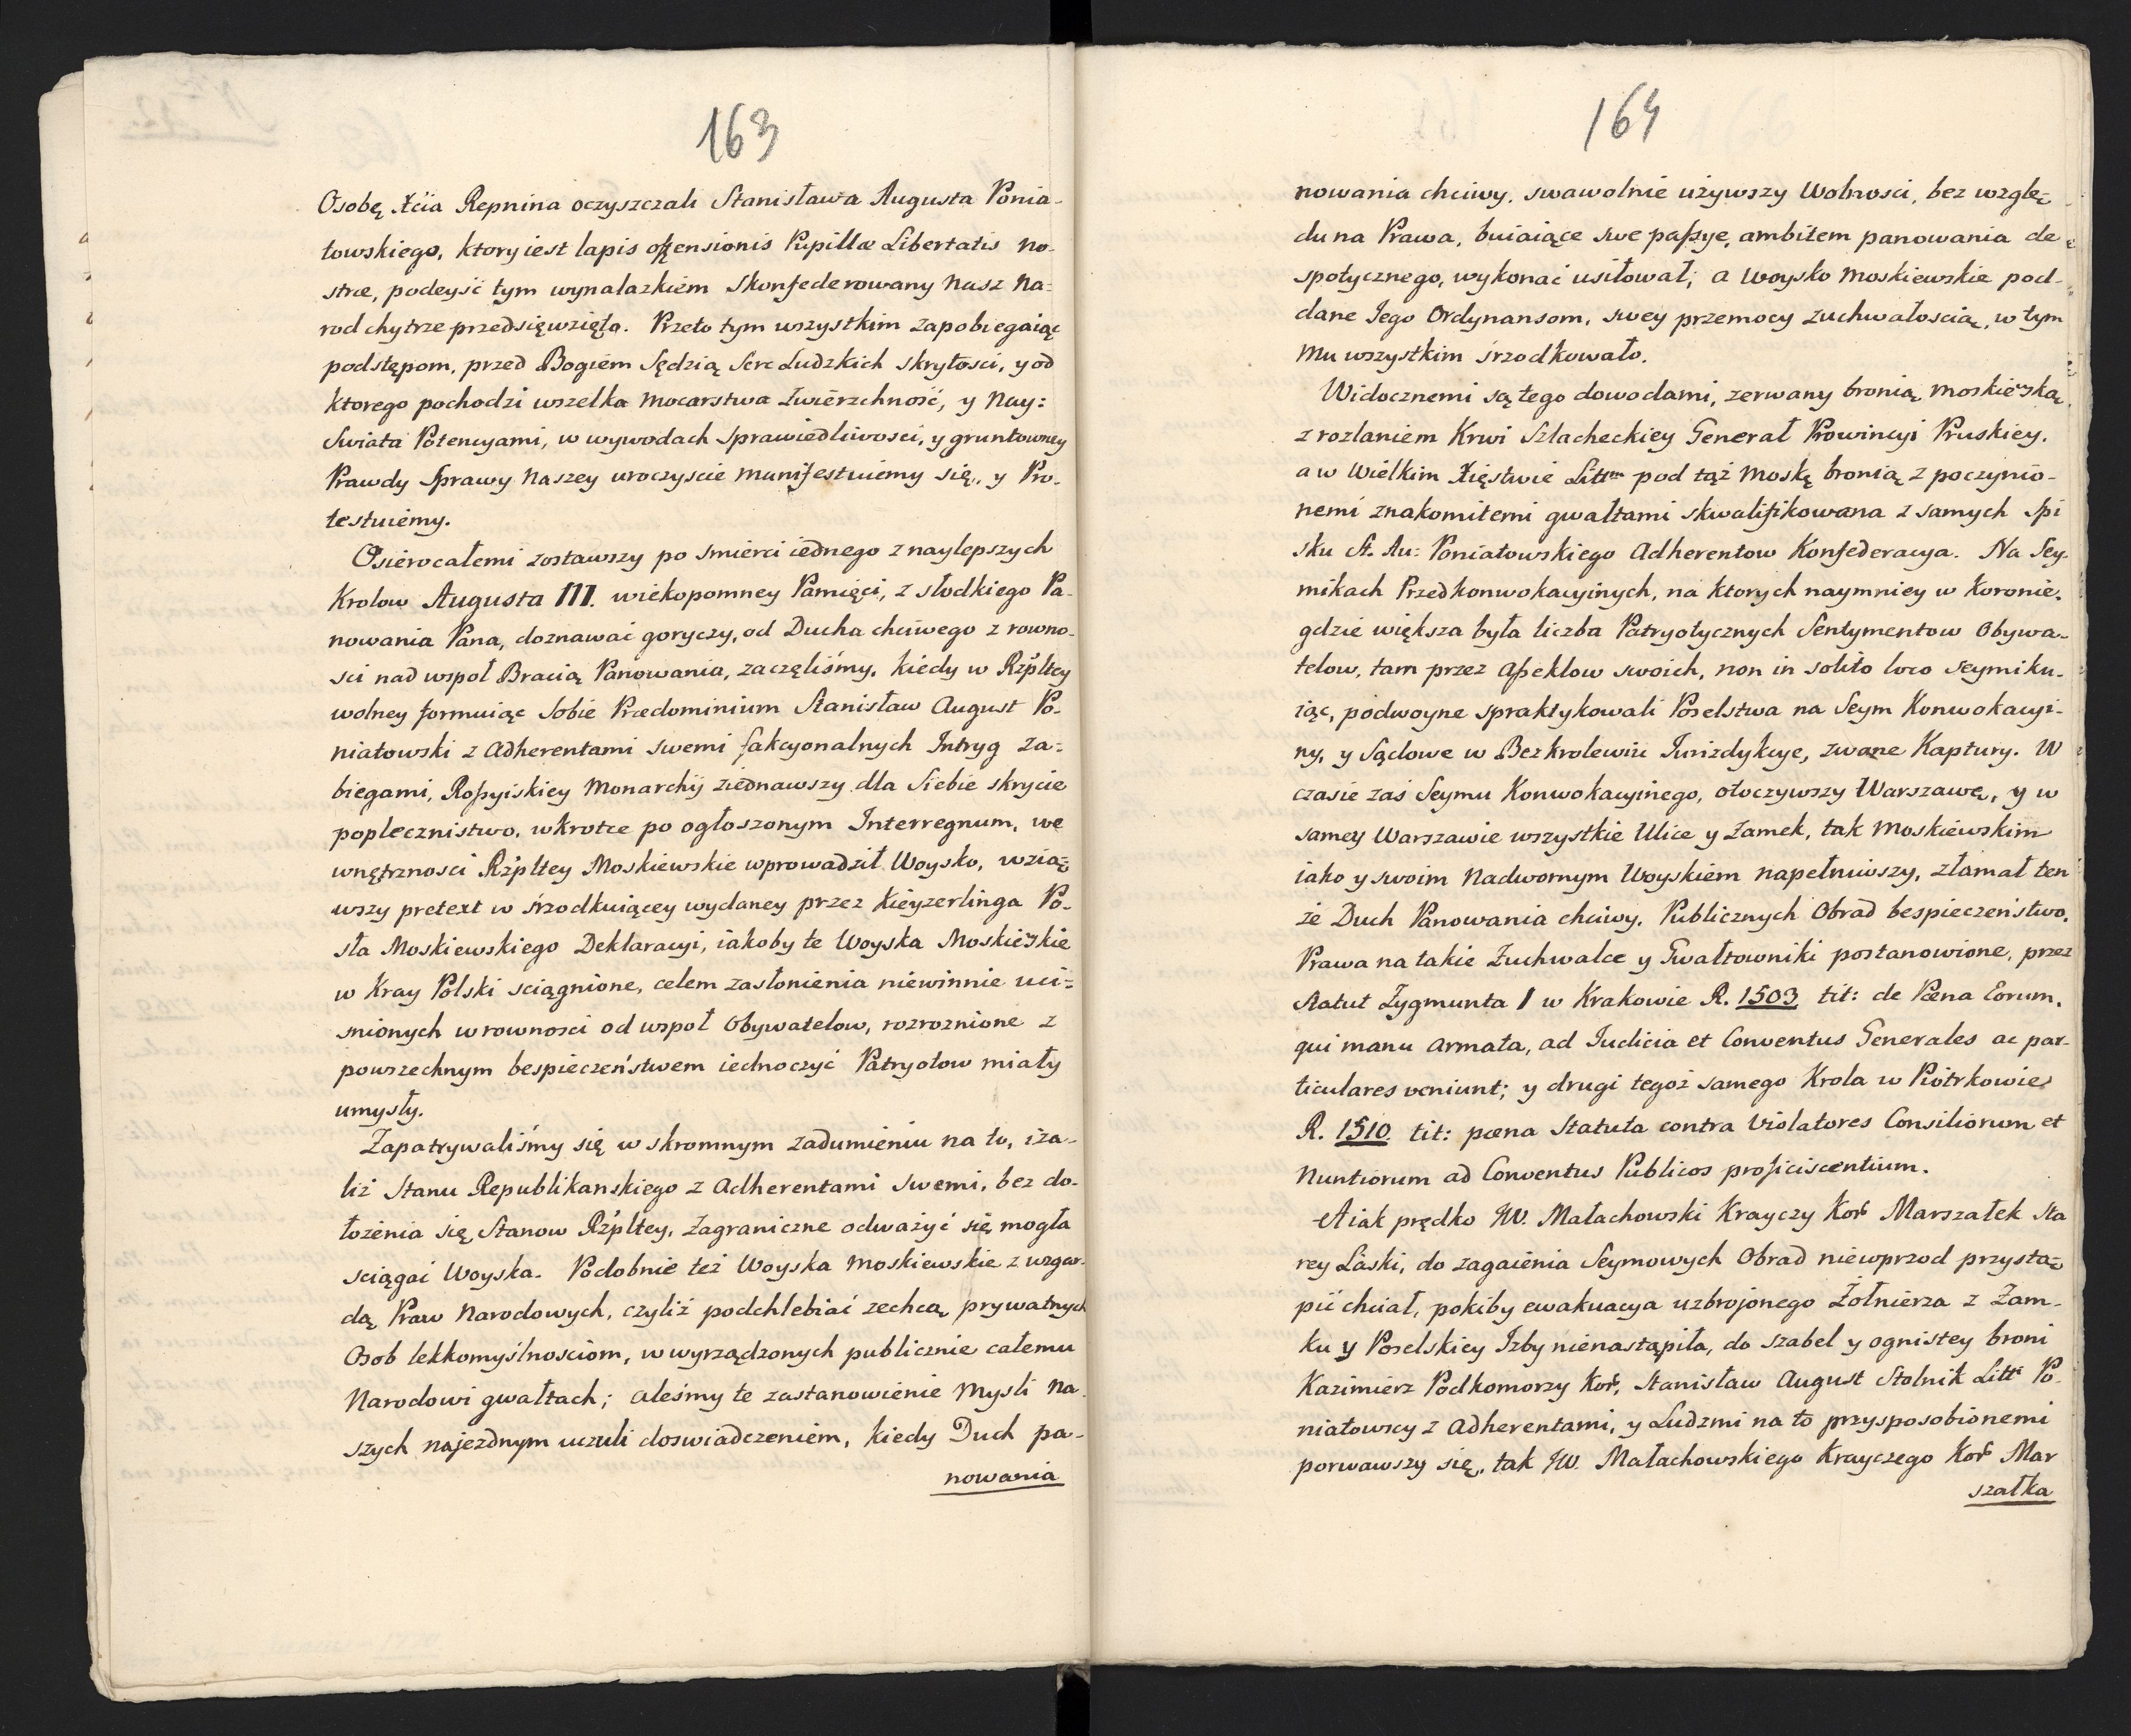 163
Osobę Xcia Repnina oczyszczali Stanisława Augusta Ponia-
towskiego, ktory iest lapis offensionis Pupillæ Libertatis no-
stræ, podeyść tym wynalazkiem Skonfederowany Nasz Na=
rod chytrze przedsięwzięto. Przeto tym wszystkim zapobiegaiąc
podstępom, przed Bogiem Sędzią Serc Ludzkich skrytosci, y od
ktorego pochodzi wszelka Mocarstwa Zwierzchność, y Nay:
Swiata Potencyami, w wywodach Sprawiedliwosci, y gruntowney
Prawdy Sprawy Naszey uroczyscie Manifestuiemy się, y Pro-
testuiemy.
Osierocałemi zostawszy po Smierci iednego z naylepszych
Krolow Augusta III. wiekopomney Pamięci, z słodkiego Pa-
nowania Pana, doznawać goryczy, od Ducha chciwego z rowno-
sci nad wspoł Bracią Panowania, zaczęliśmy, kiedy w Rżpltey
wolney formuiąc Sobie Prædominium Stanisław August Po-
niatowski z Adherentami swemi fakcyonalnych Intryg za=
biegami, Roßyiskiey Monarchij ziednawszy dla Siebie skrycie
poplecznistwo, wkrotce po ogłoszonym Interregnum, we
wnętrznosci Rżpltey Moskiewskie wprowadził Woysko, wzią=
wszy pretext w śrzodkuiącey wydaney przez Kieyzerlinga Po-
sła Moskiewskiego Deklaracyi, iakoby te Woyska Moskiewskie
w Kray Polski sciągnione, celem zasłonienia niewinnie uci=
snionych w rownosci od wspoł Obywatelow, rozroznione z
powszechnym bespieczeństwem iednoczyć Patryotow miały
umysły.
Zapatrywaliśmy się w skromnym zadumieniu na to, iza-
liż Stanu Republikanskiego z Adherentami swemi, bez do-
łożenia się Stanow Rżpltey, Zagraniczne odważyć się mogła
sciągać Woyska. Podobnie też Woyska Moskiewskie z wzgar-
dą Praw Narodowych, czyliż podchlebiać zechcą prywatnych
Osob lekkomyślnosciom, w wyrządzonych publicznie całemu
Narodowi gwałtach; aleśmy te zastanowienie Mysli Na-
szych najezdnym uczuli doswiadczeniem, kiedy Duch pa-
nowania
164
nowania chciwy, swawolnie używszy Wolnosci, bez wzglę=
du na Prawa, buiaiące swe paßye, ambitem panowania de
spotycznego, wykonać usiłował; a Woysko Moskiewskie pod-
dane Jego Ordynansom, swey przemocy zuchwałoscią, w tym
Mu wszystkim śrzodkowało.
Widocznemi są tego dowodami, zerwany bronią Moskiewską
z rozlaniem Krwi Szlacheckiey Generał Prowincyi Pruskiey,
a w Wielkim Xięstwie Littm pod tąż Moską bronią z poczynio-
nemi znakomitemi gwałtami skwalifikowana z samych Spi
sku St. Au: Poniatowskiego Adherentow Konfederacya. Na Sey-
mikach Przedkonwokacyinych, na ktorych naymniey w Koronie,
gdzie większa była liczba Patryotycznych Sentymentow Obywa-
telow, tam przez Aßeklow swoich, non in solito loco Seymiku-
iąc, podwoyne spraktykowali Poselstwa na Seym Konwokacyi-
ny, y Sądowe w Bezkrolewiu Iurizdykcye, zwane Kaptury. W
czasie zas Seymu Konwokacyinego, otoczywszy Warszawę, y w
samey Warszawie wszystkie Ulice y Zamek, tak Moskiewskim
iako y swoim Nadwornym Woyskiem napełniwszy, złamał ten
że Duch Panowania chciwy, Publicznych Obrad bespieczeństwo,
Prawa na takie Zuchwalce y Gwałtowniki postanowione, przez
Statut Zygmunta I w Krakowie R. 1503 tit: de Pœna Eorum,
qui manu armata, ad Iudicia et Conventus Generales ac par-
ticulares veniunt; y drugi tegoż samego Krola w Piotrkowie
R. 1510. tit: pœna Statuta contra Violatores Consiliorum et
Nuntiorum ad Conventus Publicos proficiscentium.
A iak prędko JW. Małachowski Krayczy Kor Marszałek Sta
rey Laski, do zagaienia Seymowych Obrad niewprzod przystą=
pić chciał, pokiby ewakuacya uzbrojonego Żołnierza z Zam-
ku y Poselskiey Izby nienastąpiła, do szabel y ognistey broni
Kazimierz Podkomorzy Kor, Stanisław August Stolnik Litt Po-
niatowscy z Adherentami, y Ludzmi na to przysposobionemi
porwawszy się, tak JW. Małachowskiego Krayczego Kor Mar
szałka